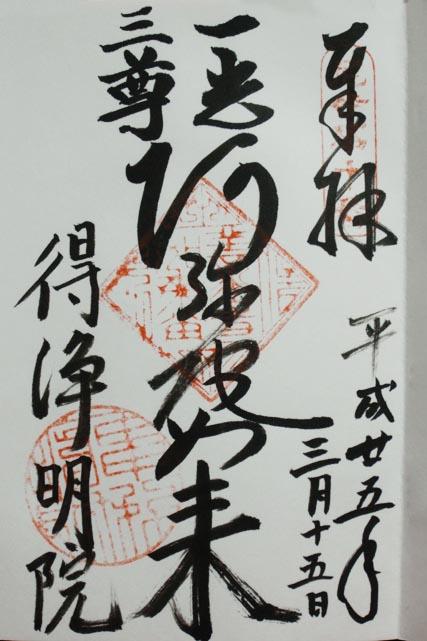 奉拝
平成廿五年
三月十五日
一光三尊
阿弥陀如来
得浄明院